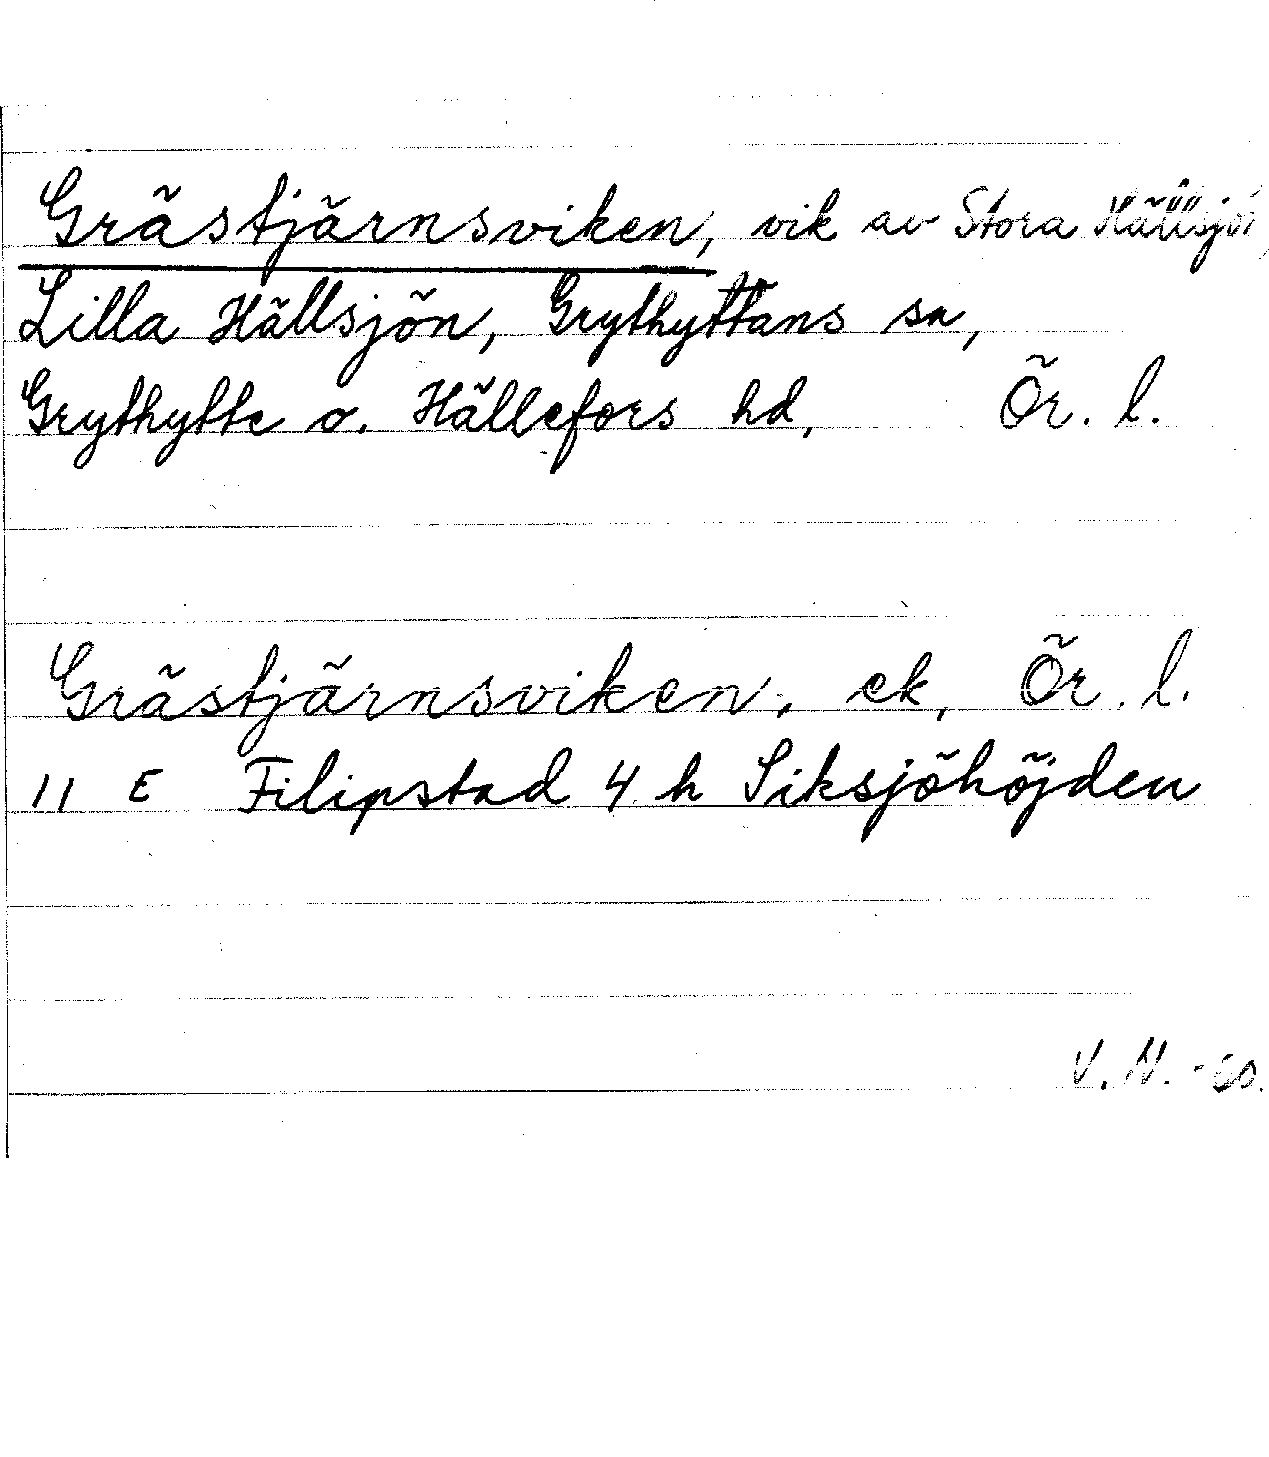 Grästjärnsviken, vik av Stora Hällsjön,
Lilla Hällsjön, Grythyttans sn,
Grythytte o. Hällefors hd, Ör. l.
Grästjärnsviken, ek, Ör. l.
11 E Filipstad 4 h Siksjöhöjden
V. N.